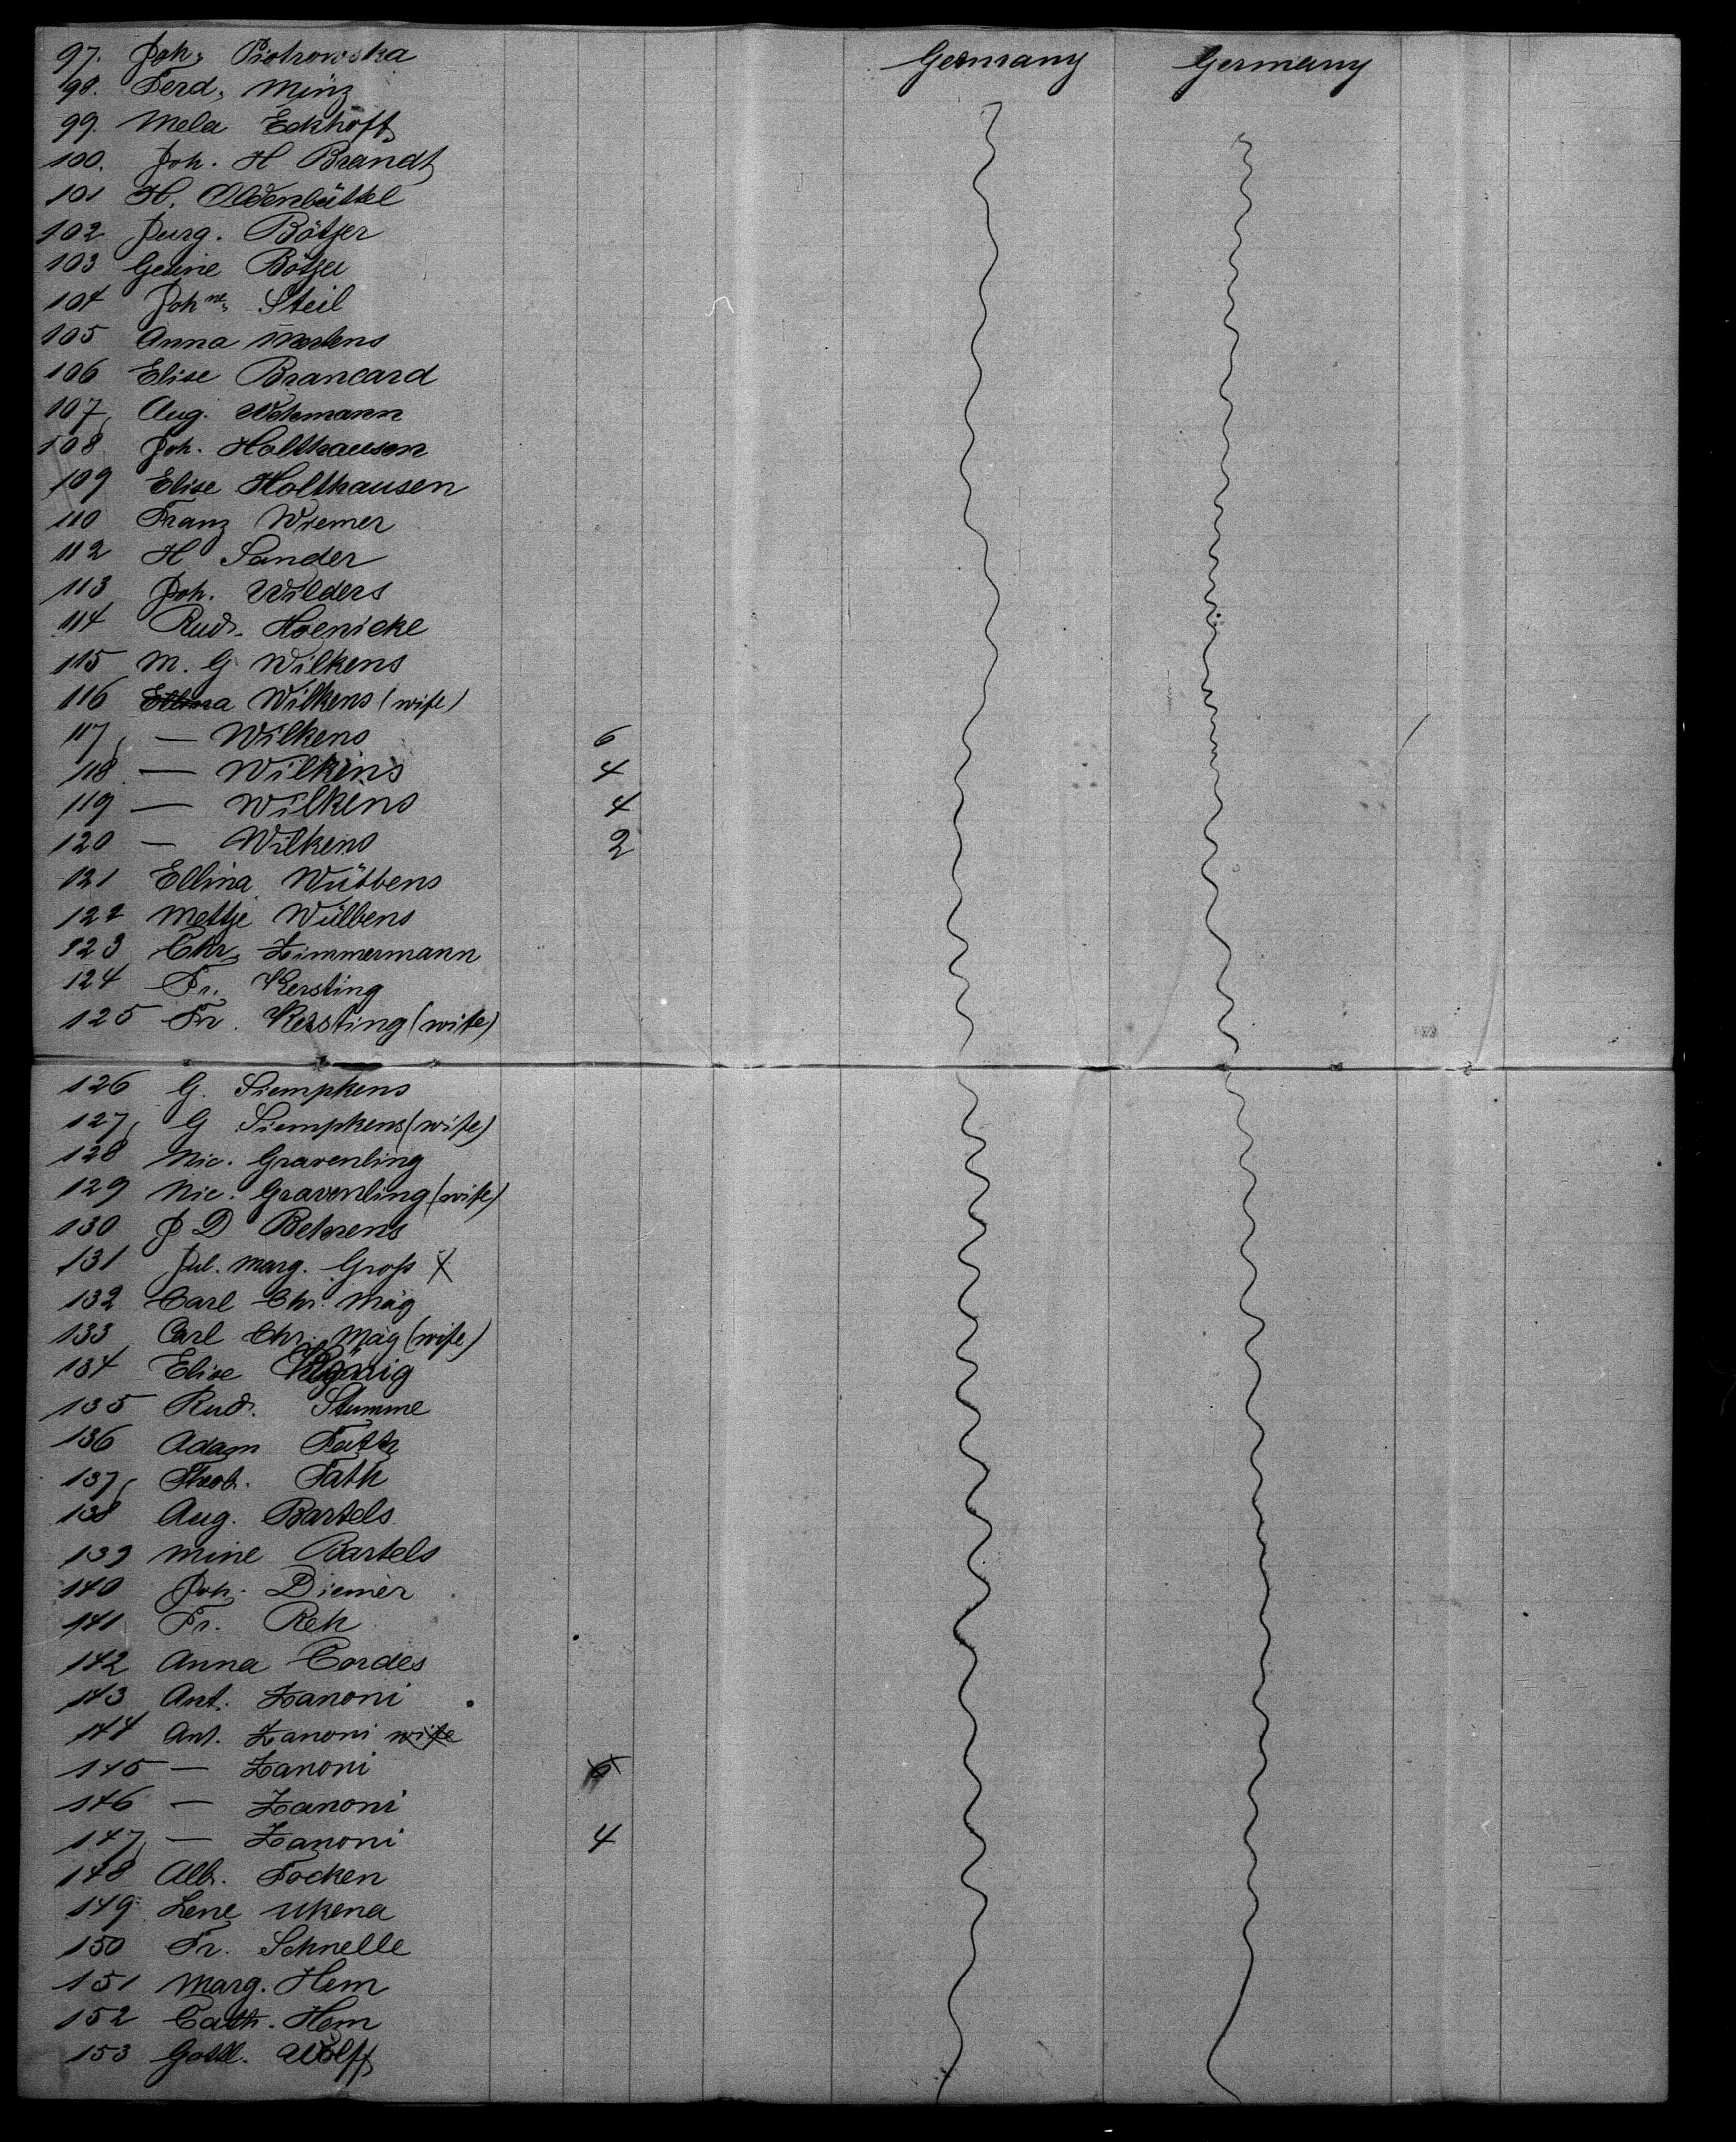 97. Joh. Piotrowska Germany Germany
98. Ferd. Minz
99. Mela Eckhöff
100. Joh. H Brandt
101 H. Oldenbüttel
102 Jurg. Bötjer
103 Gesine Bötjer
104 Joh ne. Steil
105 Anna Mertens
106 Elise Brancard
107, Aug. Wehmann
108 Joh. Holthausen
109 Elise Holthausen
110 Franz Wiemer
112 H Sander
113 Joh. Wilders
114 Rud. Hoenicke
115 M. G Wilkens
116 Wilkens (wife)
117, — Wilkens 6
118 — Wilkens 4
119 — Wilkens 4
120 — Wilkens 2
121 Ellina Wübbens
122 Mettje Wübbens
123 Chr. Zimmermann
124 Fr. Kersting
125 Fr. Kersting (wife)
126 G. Siempkens
127, G Siempkens (wife)
128 Nic. Gravenling
129 Nic. Gravenling (wife)
130 J D Behrens
131 Jul. Marg. Groß X
132 Carl Chr. Mäg
133 Carl Chr. Mäg (wife)
134 Elise
135 Rud. Stumme
136 Adam Fath
137, Theob. Fath
138 Aug. Bartels
139 Mine Bartels
140 Joh. Diemer
141 Fr. Reh
142 Anna Cordes
143 Ant. Zanoni
144 Ant. Zanoni wife
145 — Zanoni
146 — Zanoni
147, — Zanoni 4
148 Alb. Focken
149 Lene Ukena
150 Fr. Schnelle
151 Marg. Hem
152 Cath. Hem
153 Gottl. Wolff